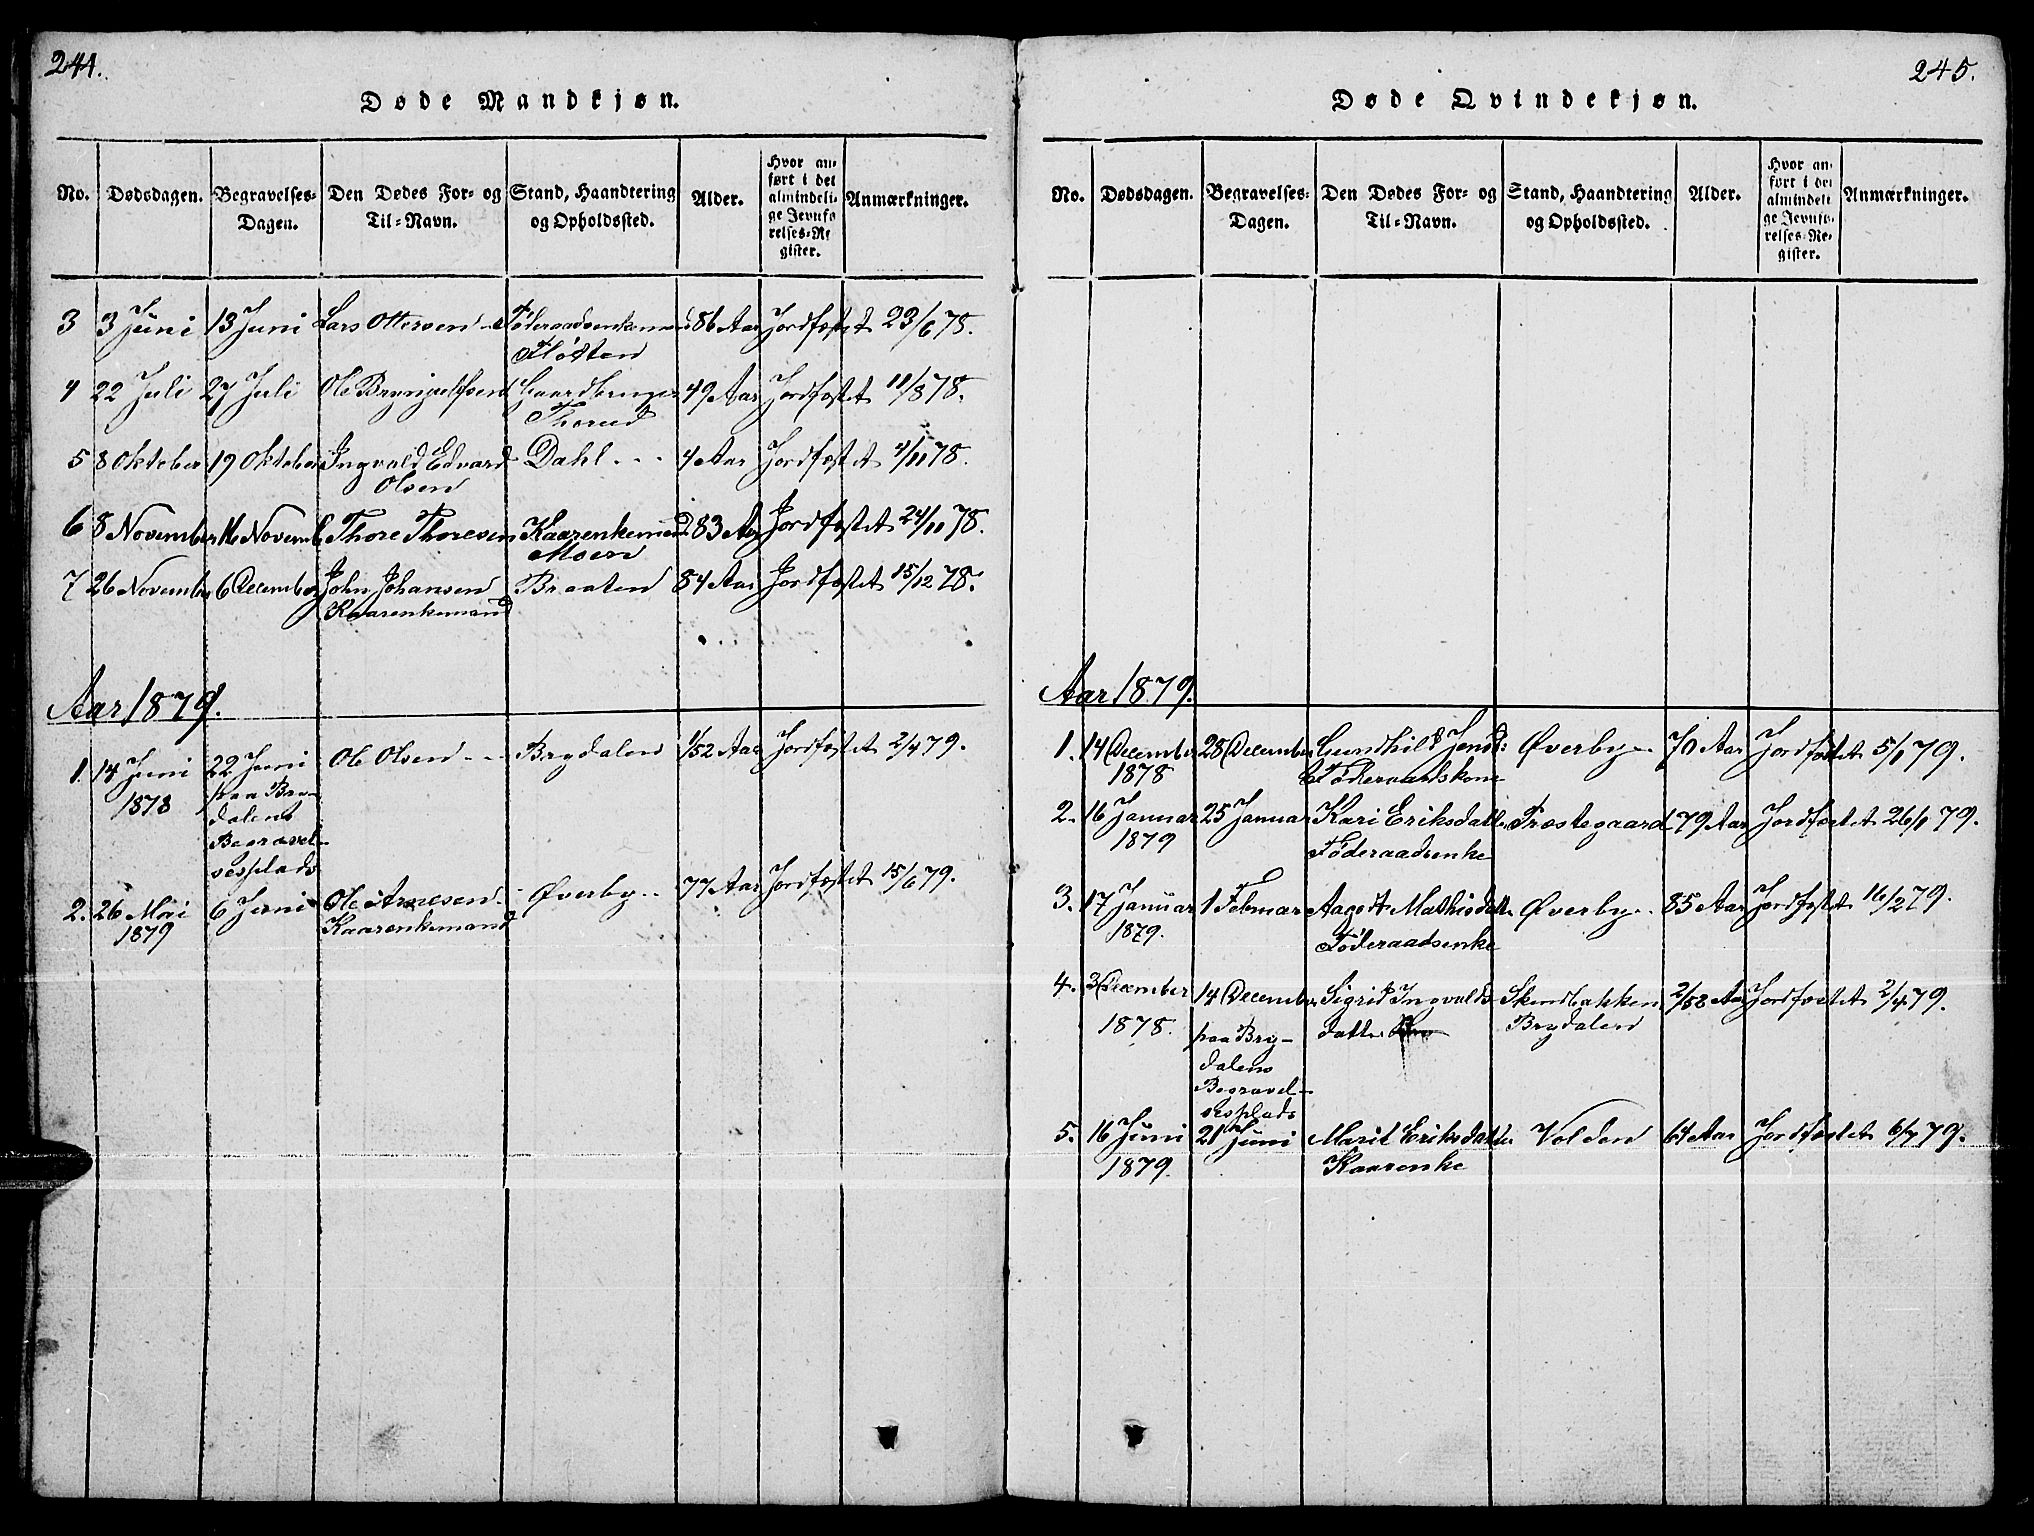 244.
Døde Mandkjøn.
No. Dødsdagen. Begravelses-Dagen. Den Dødes For- og Til-Navn. Stand, Haandtering og Opholdssted. Alder. Hvor anført i det almindelige Jevnførelses-Register. Anmærkninger.
3 3 Juni 13 Juni Lars Ottersen Føderaadsenkemand 86 Aar Jordfæstet 23/6 78.
Flodten
4 22 Juli 27 Juli Ole Bryngelfsen Gaardbruger 49 Aar Jordfæstet 11/8 78.
Thorud
5 8 Oktober 19 Oktober Ingvald Edvard Dahl 4 Aar Jordfæstet 4/11 78.
Olsen
6 8 November 16 Novemb Thore Thoresen Kaarenkemand 83 Aar Jordfæstet 24/11 78.
Moen
7 26 November 6 December John Johansen Braaten 84 Aar Jordfæstet 15/12 78.
Kaarenkemand
Aar 1879.
1. 14 Juni 22 Juni Ole Olsen Brydalen 1/52 Aar Jordfæstet 2/4 79.
1878 paa Bry-
dalens
Begravel-
sesplads
2. 26 Mai 6 Juni Ole Arnesen Øverby 77 Aar Jordfæstet 15/6 79.
1879 Kaarenkemand
245.
Døde Qvindekjøn.
No. Dødsdagen. Begravelses-Dagen. Den Dødes For- og Til-Navn. Stand, Haandtering og Opholdssted. Alder. Hvor anført i det almindelige Jevnførelses-Register. Anmærkninger.
Aar 1879.
1. 14 December 28 December Gunhild Jensd: Øverby 70 Aar Jordfæstet 5/1 79.
1878 Føderaadskone
2. 16 Januar 25 Januar Kari Eriksdatter Præstegaard 79 Aar Jordfæstet 26/1 79.
1879 Føderaadsenke
3. 17 Januar 1 Februar Aagot Mathisdatt Øverby 85 Aar Jordfæstet 16/2 79.
1879. Føderaadsenke
4. 3 December 14 December Sigrid Ingvalds Skindbakken 2/52 Aar Jordfæstet 2/4 79.
1878. paa Bry- datter Brydalen
dalens
Begravel-
sesplads
5. 16 Juni 21 Juni Marit Eriksdatter Volden 64 Aar Jordfæstet 6/7 79.
1879. Kaarenke